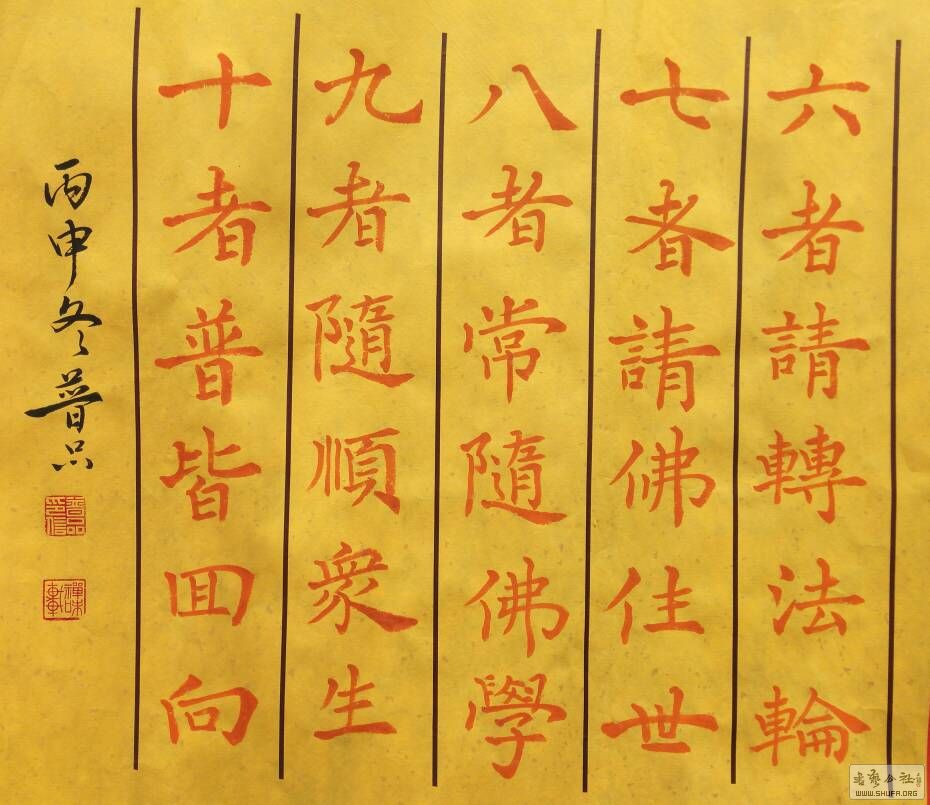 六者請轉法輪
七者請佛住世
八者常隨佛學
九者隨順衆生
十者普皆囬向
丙申冬普品
普品印信
禪味軒
书艺公社
WWW.SHUFA.ORG